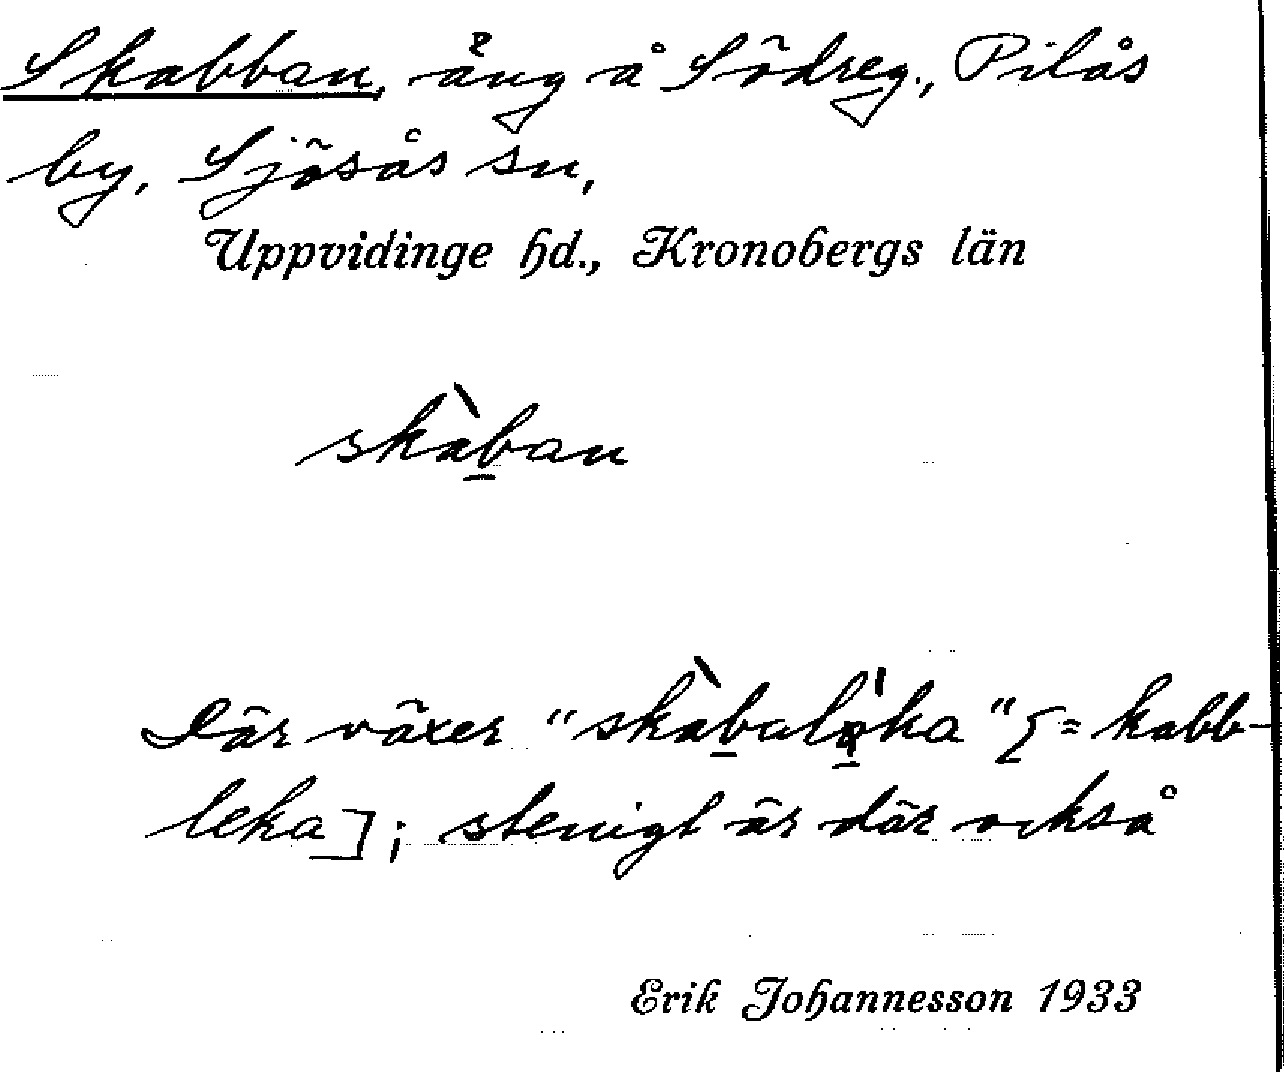 Skabban, äng å Södreg., Pilås
by, Sjösås sn,
Uppvidinge hd., Kronobergs län
skàb̲an
Där växer "skàb̲alə̍ka" [= kabb-
leka]; stenigt är där också
Erik Johannesson 1933